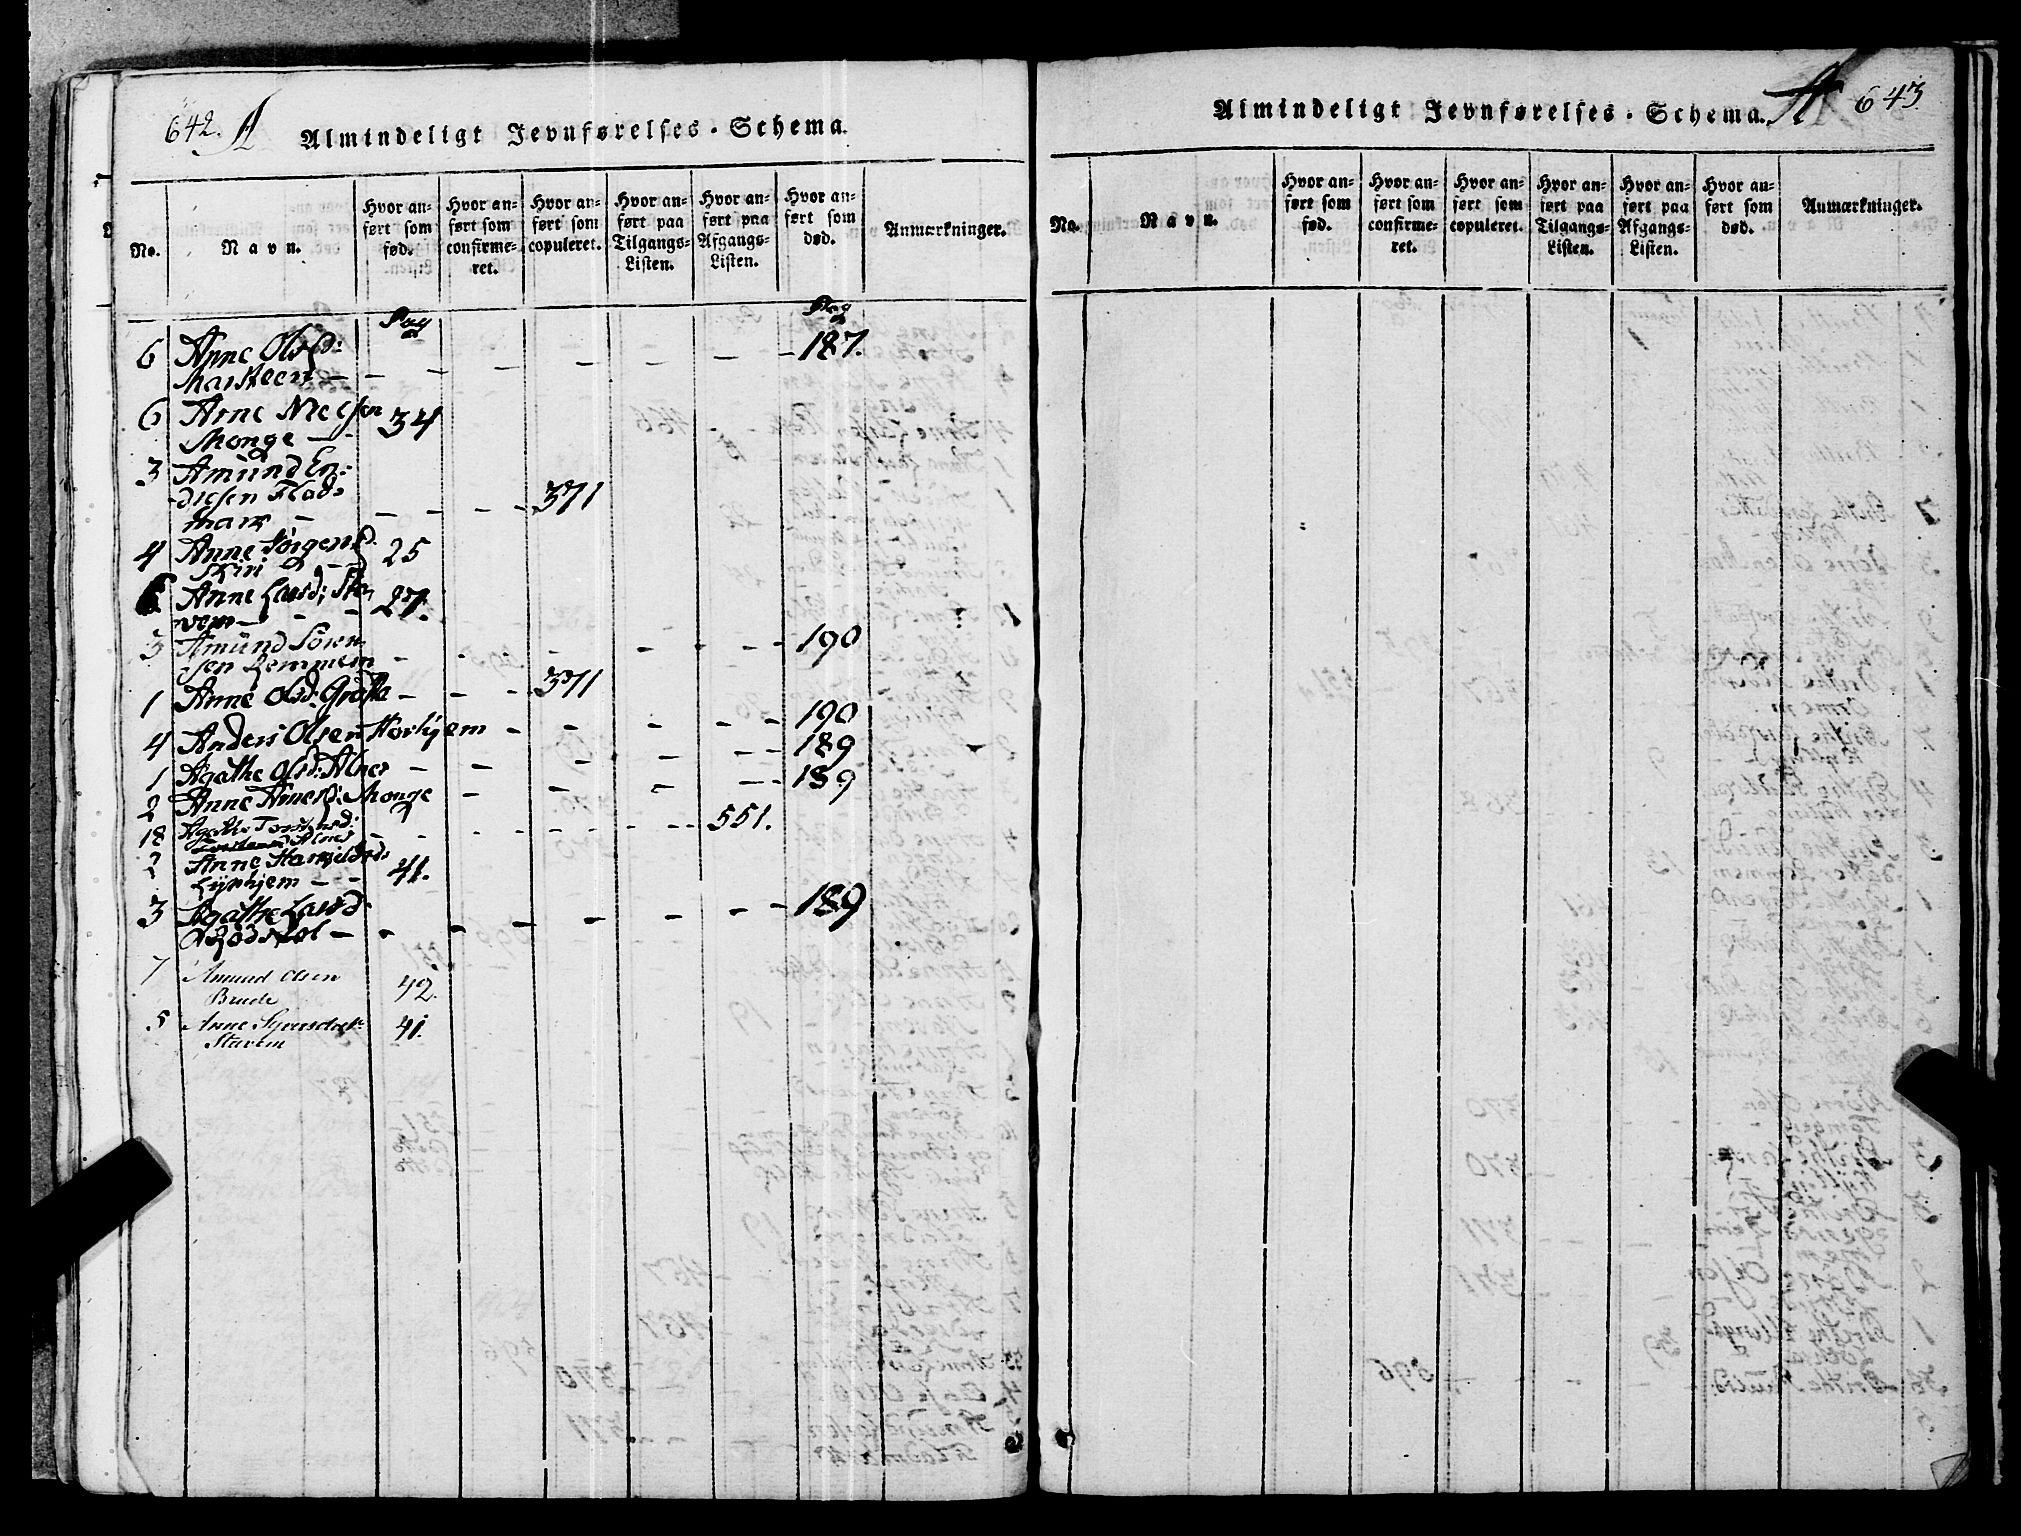 642. A
Almindeligt Jevnførelses-Schema.
No.
Navn.
Hvor anført som fød.
Hvor anført som confirmeret.
Hvor anført som copuleret.
Hvor anført paa Tilgangs-Listen.
Hvor anført paa Afgangs-Listen.
Hvor anført som død.
Anmærkninger.
Pag Pag
6 Anne Olsd: 187.
Marsteen
6 Arne Nielsen 34
Monge
3 Amund En-
dresen Flad- 371
mark
4 Anne Jørgensd. 25
Skiri
Anne Larsd: Sta 27.
vem
3 Amund Søren 190
sen Remmem
1 Anne Olsd: Grøtta 371
4 Anders Olsen Horhjem 190
1 Agathe Olsd: Alnes 189
2 Anne Arnesd: Monge 189
18 Agathe Torstensd: 551.
Alnes
2 Anne Haraldsd:
Lyphjem 41.
3 Agathe Larsd 189
Bødsføl
7 Amund Olsen
Brude 42.
5 Anne Syversdatr 41.
Stavem
A 643
Almindeligt Jevnførelses-Schema.
No.
Navn.
Hvor anført som fød.
Hvor anført som confirmeret.
Hvor anført som copuleret.
Hvor anført paa Tilgangs-Listen.
Hvor anført paa Afgangs-Listen.
Hvor anført som død.
Anmærkninger.